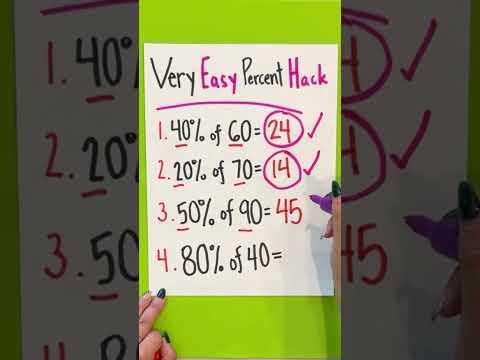 Very Easy Percent Hack
1. 40% of 60= 24
2. 20% of 70= 14
3. 50% of 90= 45
4. 80% of 40=